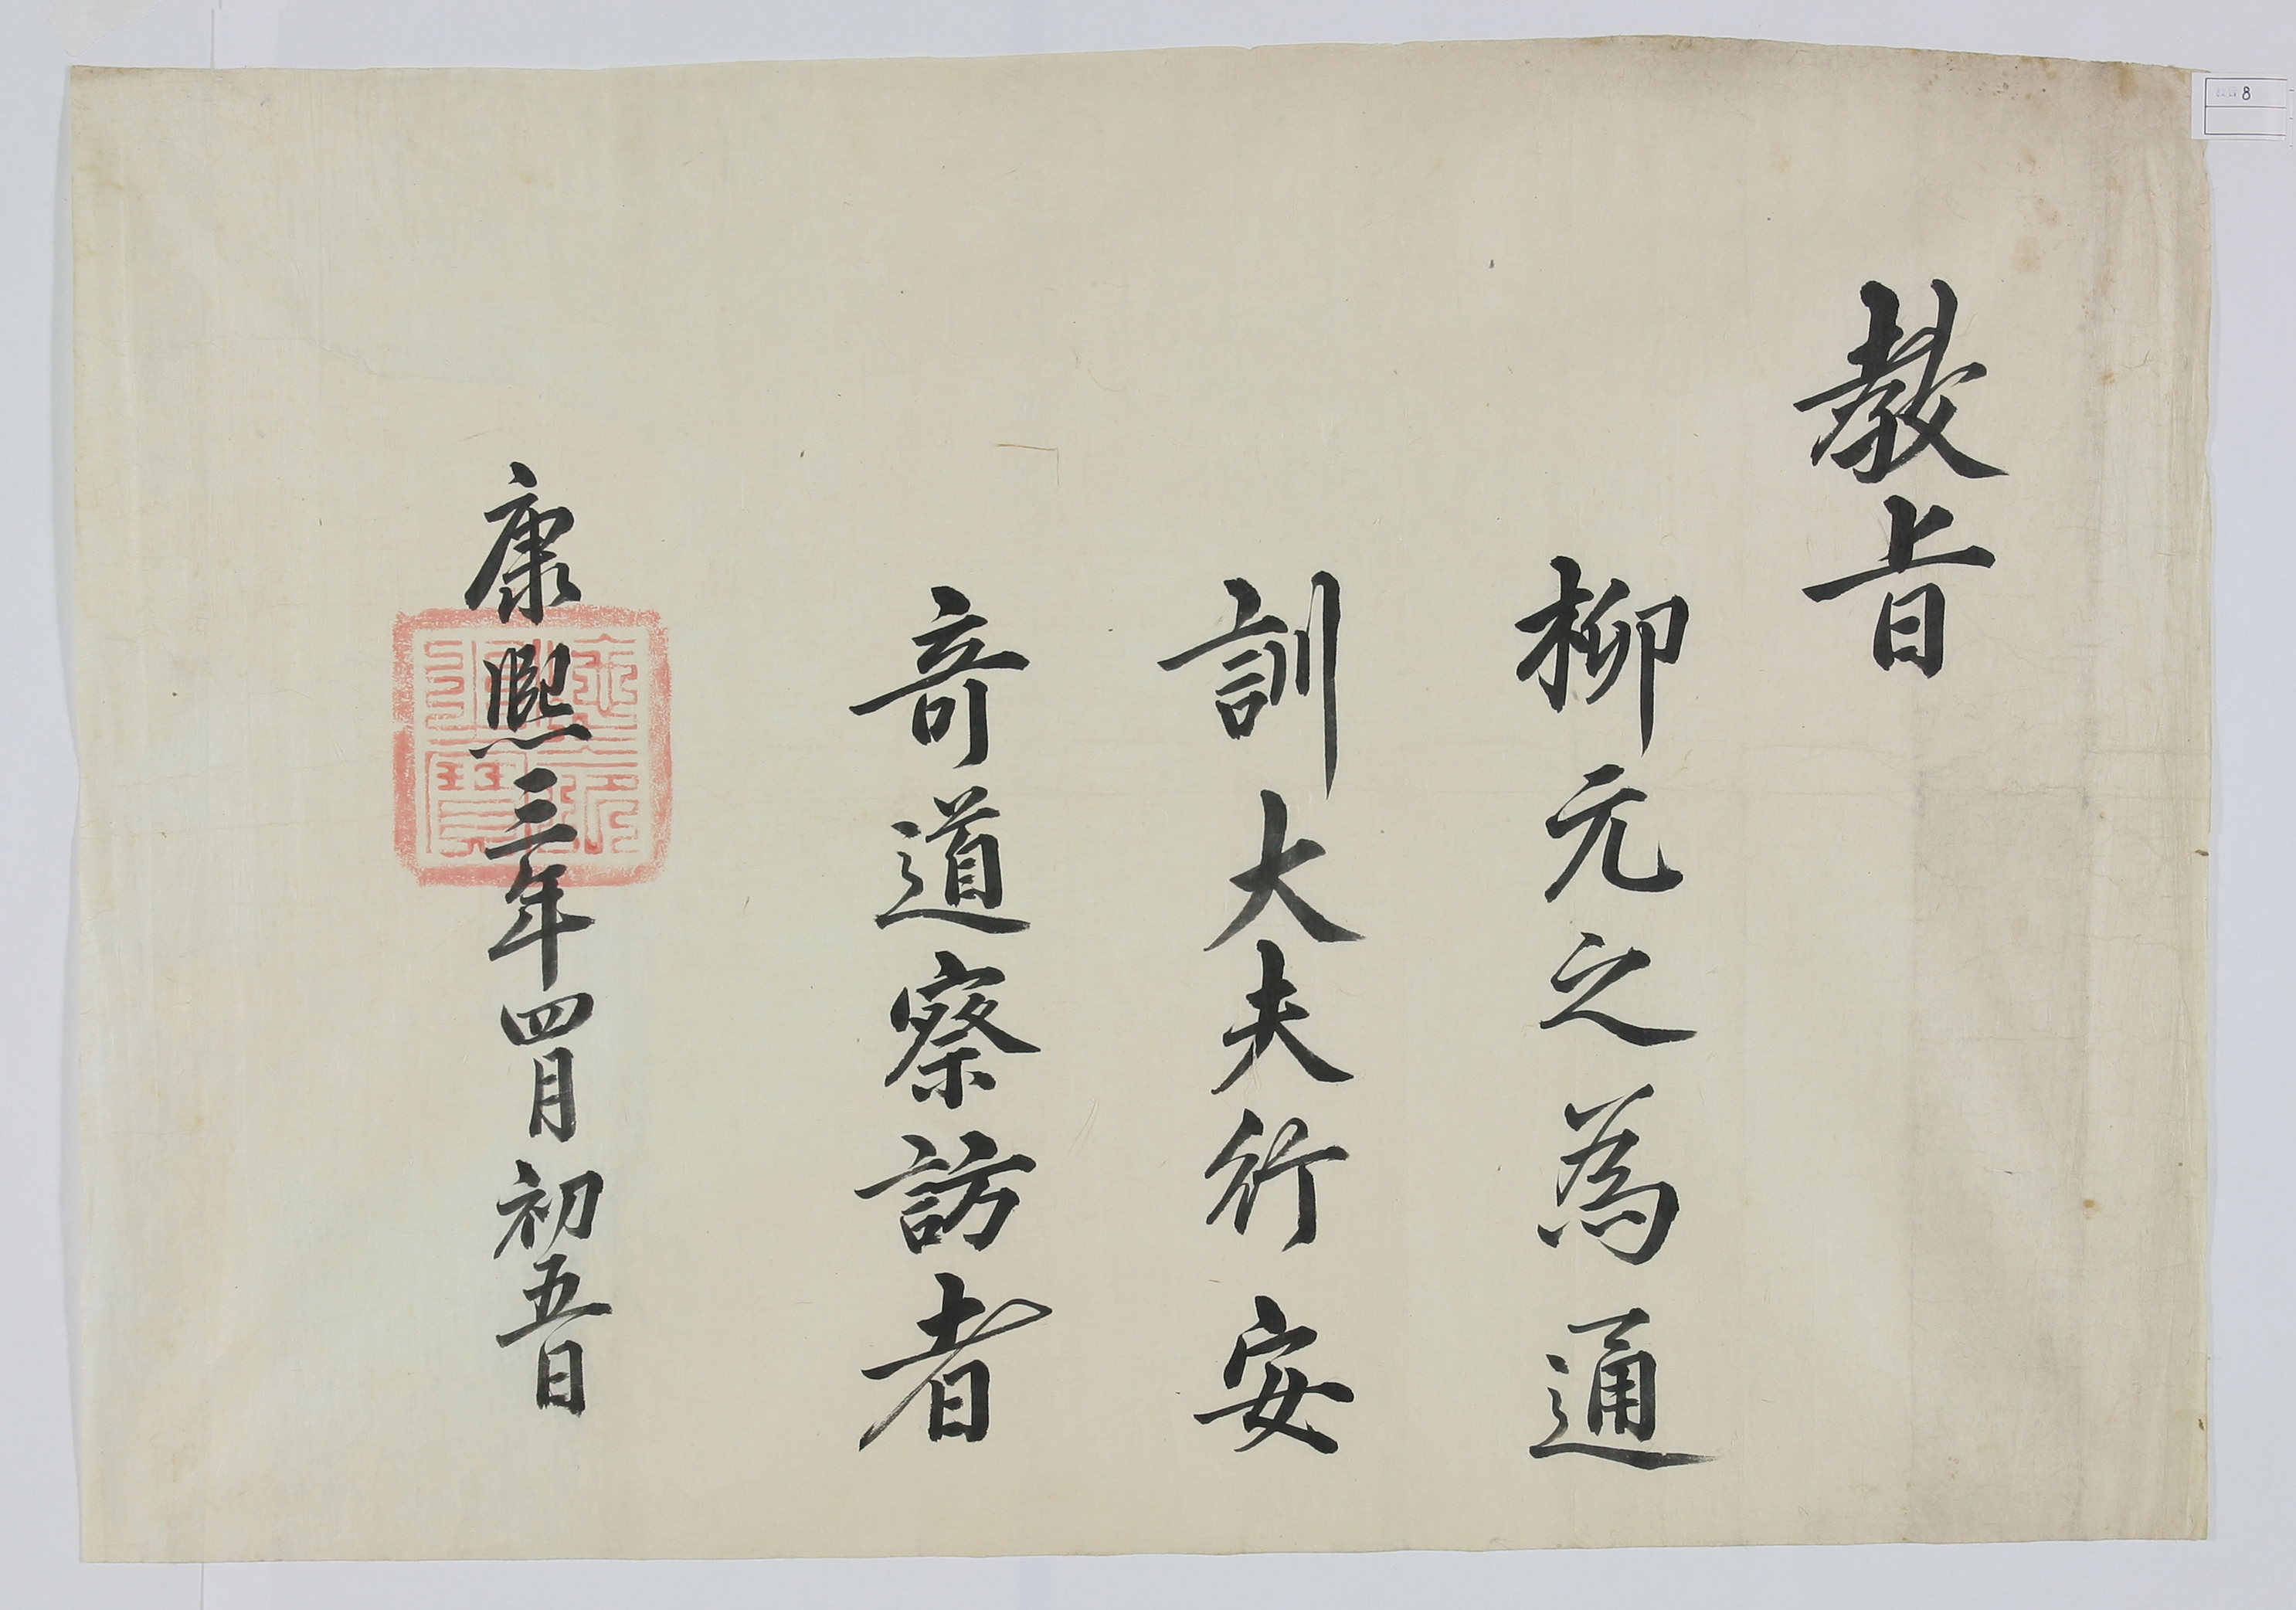 教旨
柳元之為通
訓大夫行安
竒道察訪者
康熙三年四月初五日
8